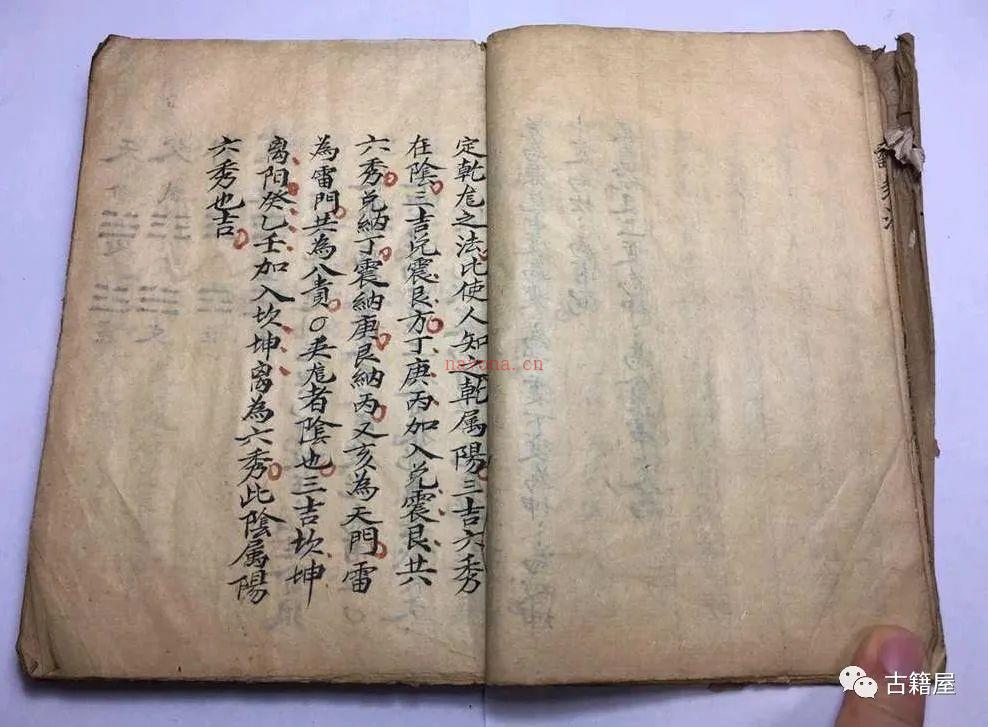 定乾尨之法比使人知之乾属陽三吉六秀
在陰三吉兑震艮方丁庚丙加入兑震艮共六
六秀兑納丁震納庚艮納丙又亥為天門雷
為雷門共為八貴〇英尨者陰也三吉坎坤
离阳癸乙壬加入坎坤离為六秀此陰属陽
六秀也吉
nayona.cn
古籍屋